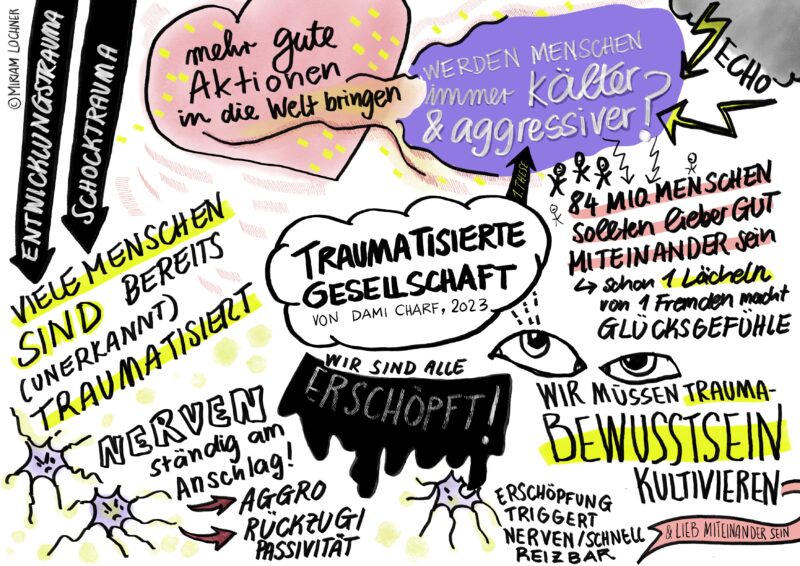 © MIRIAM LOCHNER
ENTWICKLUNGSTRAUMA
SCHOCKTRAUMA
mehr gute
Aktionen
in die Welt bringen
WERDEN MENSCHEN
immer kälter
& aggressiver?
ECHO
1. THESE
84 MIO. MENSCHEN
sollten lieber GUT
MITEINANDER sein
↳ schon 1 Lächeln
von 1 Fremden macht
GLÜCKSGEFÜHLE
TRAUMATISIERTE
GESELLSCHAFT
VON DAMI CHARF, 2023
VIELE MENSCHEN
SIND BEREITS
(UNERKANNT)
TRAUMATISIERT
WIR SIND ALLE
ERSCHÖPFT!
WIR MÜSSEN TRAUMA-
BEWUSSTSEIN
KULTIVIEREN
& LIEB MITEINANDER SEIN
NERVEN
ständig am
Anschlag!
→ AGGRO
→ RÜCKZUG |
PASSIVITÄT
ERSCHÖPFUNG
TRIGGERT
NERVEN/SCHNELL
REIZBAR